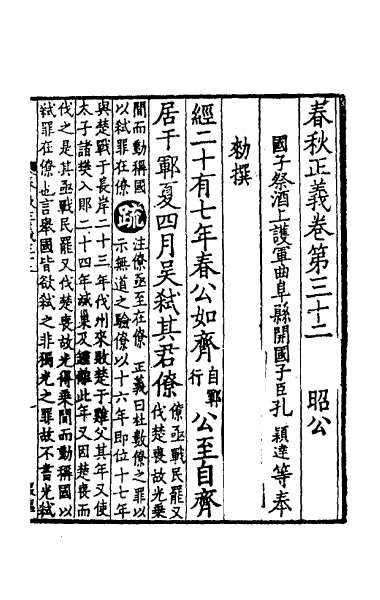 春秋正義卷第三十二 昭公
國子祭酒上護軍曲阜縣開國子臣孔 穎達等奉
勑撰
經二十有七年春公如齊 自鄆行 公至自齊
居于鄆夏四月吳弑其君僚 僚亟戰民罷又伐楚喪故光乘
間而動稱國以弑罪在僚 疏 注僚亟至在僚 正義曰杜數僚之罪以
示無道之驗僚以十六年即位十七年
與楚戰于長岸二十三年伐州來敗楚于雞父其年又使
太子諸樊入二十四年滅巢及鍾離此年又因楚喪而
伐之是其亟戰民罷又伐楚喪故光得乘間而動稱國以
弑罪在僚也言舉國皆欲弑之非獨光之罪故不書光弑